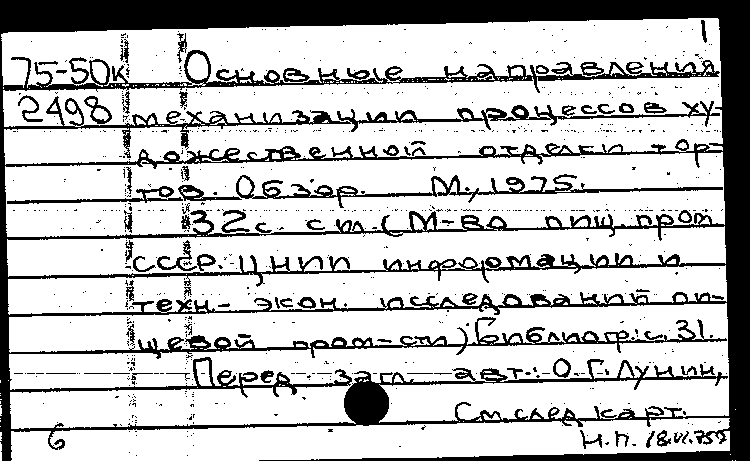 1
75-50к Основные направления
2498 механизации процессов ху-
дожественной отделки тор-
тов. Обзор. М., 1975.
32с. см. (М-во пищ. пром
СССР. ЦНИИ информации и
техн.- экон. исследований пи-
щевой пром-сти) Библиогр: с. 31.
Перед загл. авт.: О.Г. Лунин,
См. след карт.
6 Н.П. 18.VI.75г